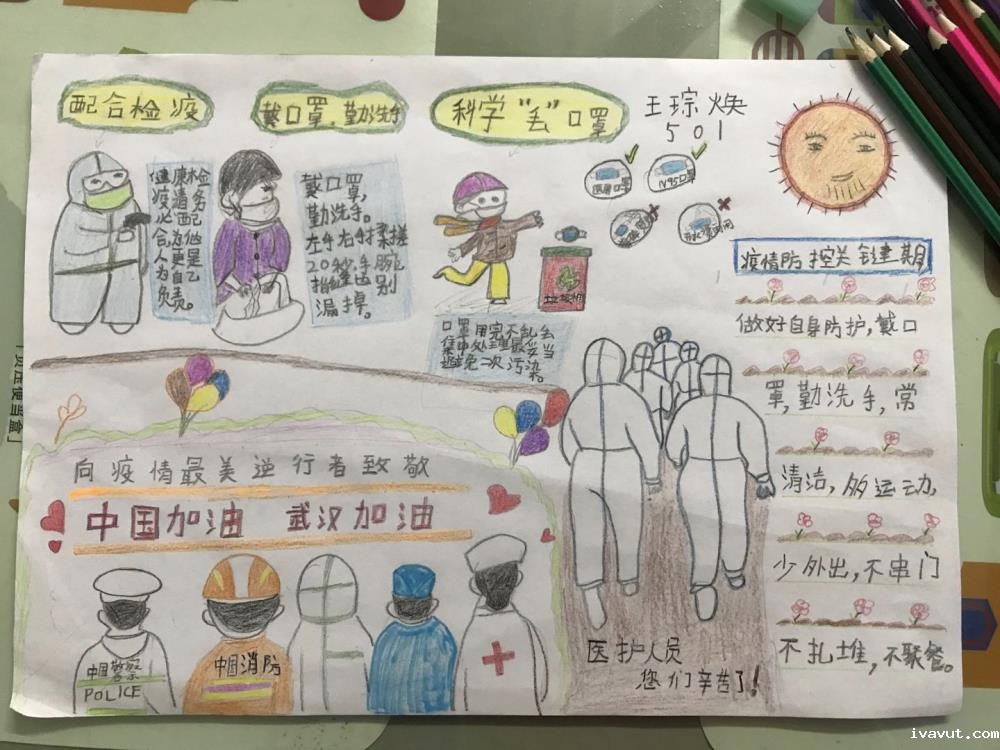 配合检疫
戴口罩,勤洗手
科学“丢”口罩
王琮焕
501
健康检
疫着务
必配
合,为他
人更是
为自己
负责。
戴口罩,
勤洗手。
左手右手揉搓
20秒,手腕
指缝齿别
漏掉。
N95口罩
垃圾桶
口罩用完不乱丢
集中处理最妥当
避免二次污染。
疫情防控关键期
做好自身防护,戴口
罩,勤洗手,常
清洁,多运动,
少外出,不串门
不扎堆,不聚餐。
向疫情最美逆行者致敬
中国加油 武汉加油
中国警察
POLICE
中国消防
医护人员
您们辛苦了!
「负压便当盒」
ivavut.com